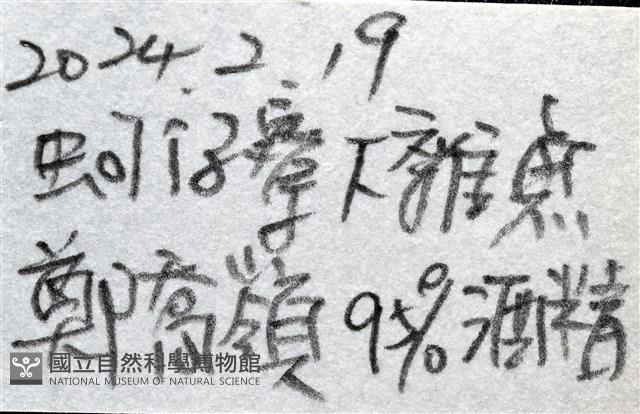 2024.2.19
蚵仔寮下雜魚
鄭喬嶺 95% 酒精
國立自然科學博物館
NATIONAL MUSEUM OF NATURAL SCIENCE